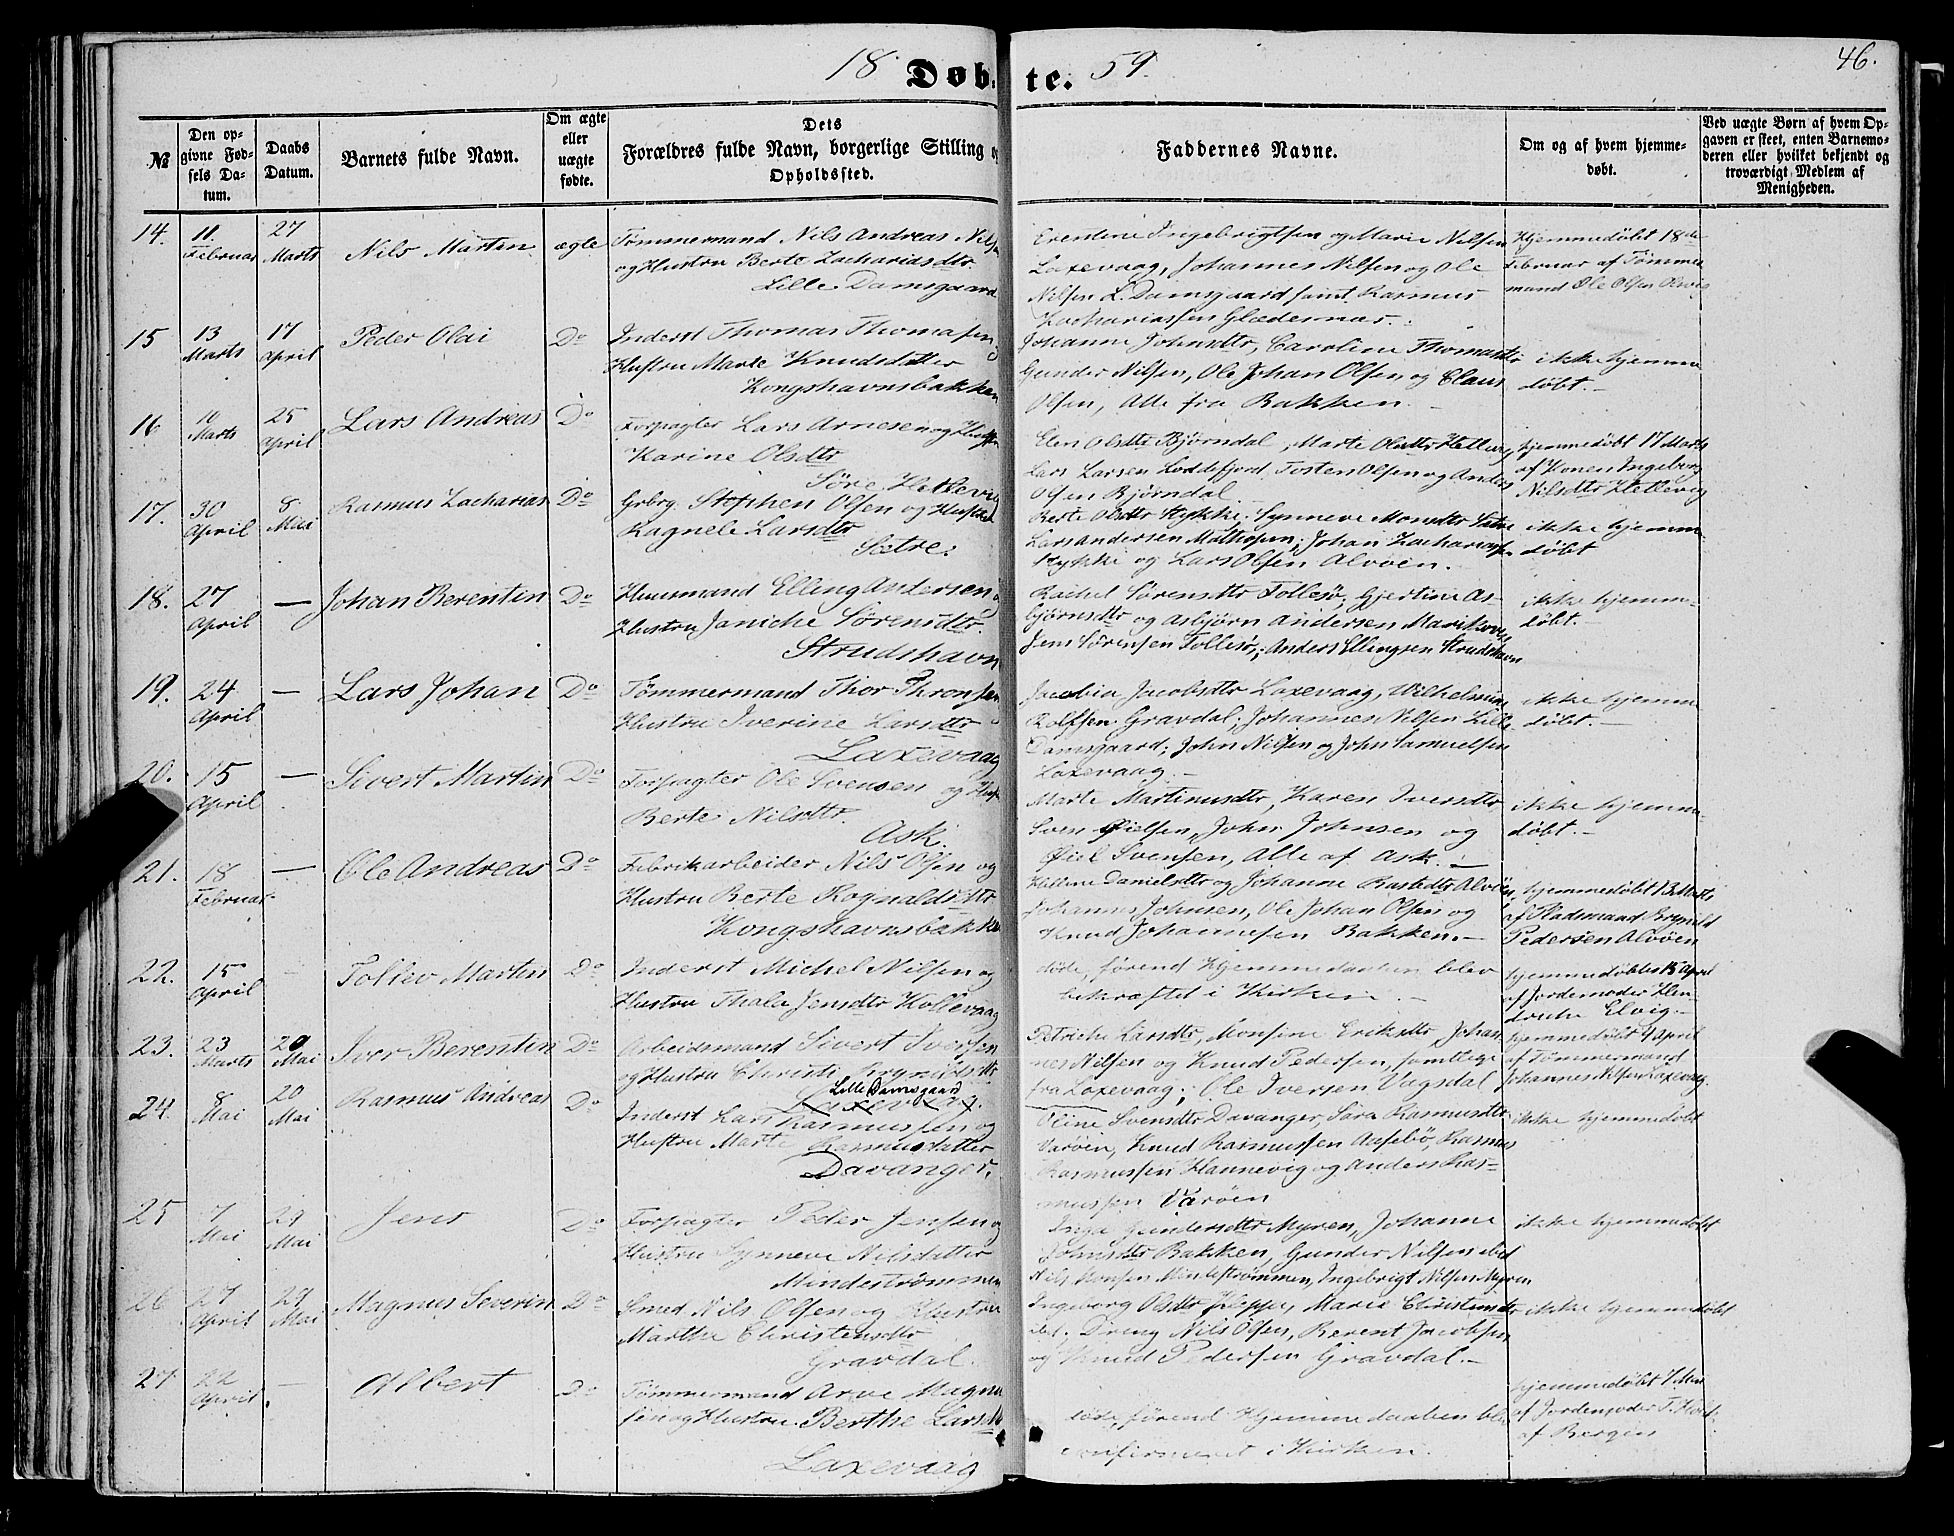 18 Døb-te. 59.
46.
№
Den opgivne Fødsels Datum.
Daabs Datum.
Barnets fulde Navn.
Om ægte eller uægte fødte.
Dets Forældres fulde Navn, borgerlige Stilling og Opholdssted.
Faddernes Navne.
Om og af hvem hjemmedøbt.
Ved uægte Børn af hvem Opgaven er skeet, enten Barnemoderen eller hvilket bekjendt og troværdigt Medlem af Menigheden.
14. 11 Februar 27 Marts Nils Martin ægte
Tømmermand Nils Andreas Nils
og Hustru Berte Zachariasdtr
Lille Damsgaard
Erentine Ingebrigtsen og Marie Nilsen
Laxevaag, Johannes Nilsen og Ole
Nilsen L. Damsgaard samt Rasmus
Zachariassen
Hjemmedøbt 18de
Februar af Tømmer
mand Ole Olsen
15 13 Marts 17 April Peder Olai Do
Inderst Thomas Thomasen
Hustru Marte Knudsdatter
Kongshavnsbakken
Johanne Johnsdtr, Caroline Thomasdtr
Gunder Nilsen, Ole Johan Olsen og Claus
Olsen, Alle fra Bakken.
ikke hjemme
døbt.-
16 10 Marts 25 April Lars Andreas Do
Forpagter Lars Arnesen og Hustru
Karine Olsdtr
Søre Hetlevig
Elen Olsdtr Bjørndal, Marte Olsdtr Hetlevig
Lars Larsen Loddefjord, Tosten Olsen og Anders
Olsen Bjørndal.
hjemmedøbt 17 Marts
af Konen Ingeborg
Nilsdtr Hetlevig
17. 30 April 8 Mai Rasmus Zacharias Do
Grbrg. Stephen Olsen og Hustru
Ragnele Larsdtr
Sætre.
Berte Olsdtr Stykke, Synneve Monsdtr Sætre
Lars Andersen Mathopen, Johan Zachariasen
Stykke og Lars Olsen Alvøen.
ikke hjemme
døbt
18. 27 April — Johan Berentin Do
Huusmand Elling Andersen og
Hustru Janiche Sørensdtr.
Strudshavn
Rachel Sørensdtr Follesø, Gjertine As-
bjørnsdtr og Asbjørn Andersen
Jens Sørensen Follesø; Anders Ellingsen Strudshavn
ikke hjemme-
døbt.-
19. 24 April — Lars Johan Do
Tømmermand Thor Thronsen
Hustru Iverine Larsdtr
Laxevaag
Jacobia Jacobsdtr Laxevaag, Wilhelmine
Rolfsen Gravdal, Johannes Nilsen Lille
Damsgaard; John Nilsen og John Samuelsen
Laxevaag.-
ikke hjemme
døbt.-
20. 15 April — Sivert Martin Do
Forpagter Ole Svensen og Hustru
Berte Nilsdtr.
Ask.
Marte Martinusdtr, Karen Iversdtr
Sven Øielsen, John Johnsen og
Øiel Svensen, Alle af Ask.-
ikke hjemme
døbt.-
21. 18 Februar — Ole Andreas Do
Fabrikarbeider Nils Olsen og
Hustru Berte Rognaldsdtr
Kongshavnsbakken
Helene Danielsdtr og Johanne Alvøen
Johannes Johnsen, Ole Johan Olsen og
Knud Johannesen Bakken.-
hjemmedøbt 13 Marts
af Pladsmand Brynild
Pedersen Alvøen
22. 15 April Tollev Martin Do
Inderst Michel Nilsen og
Hustru Thala Jensdtr Kollevaag
døde, førend Hjemmedaaben blev
bekræftet i Kirken.-
hjemmedøbt 15 April
af Jordemoder Hen-
driche Elvig.-
23. 23 Marts 20 Mai Iver Berentin Do
Arbeidsmand Sivert Iversen
og Hustru Christi Brynildsdtr
Lille Damsgaard
Laxevaag.
Petriche Larsdtr, Monsine Eriksdtr, Johan
nes Nilsen og Knud Pedersen, samtlige
fra Laxevaag; Ole Iversen Vagsdal
hjemmedøbt 4 April
af Tømmermand
Johannes Nilsen Laxevaag.
24. 8 Mai 20 Mai Rasmus Andreas Do
Inderst Lars Rasmussen og
Hustru Marte Rasmusdatter
Davanger.
Oline Svensdtr Davanger, Sara Rasmusdtr
Varøen, Knud Rasmussen Aasebø, Rasmus
Rasmussen Hannevig og Anders Ras-
mussen Varøen
ikke hjemmedøbt
25 7 Mai 29 Mai Jens Do
Forpagter Peder Jensen og
Hustru Synneve Nilsdatter
Mindestrømmen
Inga Gundersdtr Myren, Johanne
Johnsdtr Bakken, Gunder Nilsen ibid
Nils Monsen Mindestrømmen, Ingebrigt Nilsen Myren
ikke hjemmedøbt
26 27 April 29 Mai Magnus Severin Do
Smed Nils Olsen og Hustru
Marthe Christensdtr
Gravdal.
Ingeborg Olsdtr Kleppe, Marie Christensdtr
ibd. Dreng Nils Olsen, Berent Jacobsen
og Knud Pedersen Gravdal.-
ikke hjemmedøbt
27 22 April. — Albert Do
Tømmermand Arve Magnu
sen og Hustru Berthe Larsdtr
Laxevaag
døde, førend Hjemmedaaben blev
confirmeret i Kirken.
hjemmedøbt 7 Mai
af Jordemoder
af Bergen